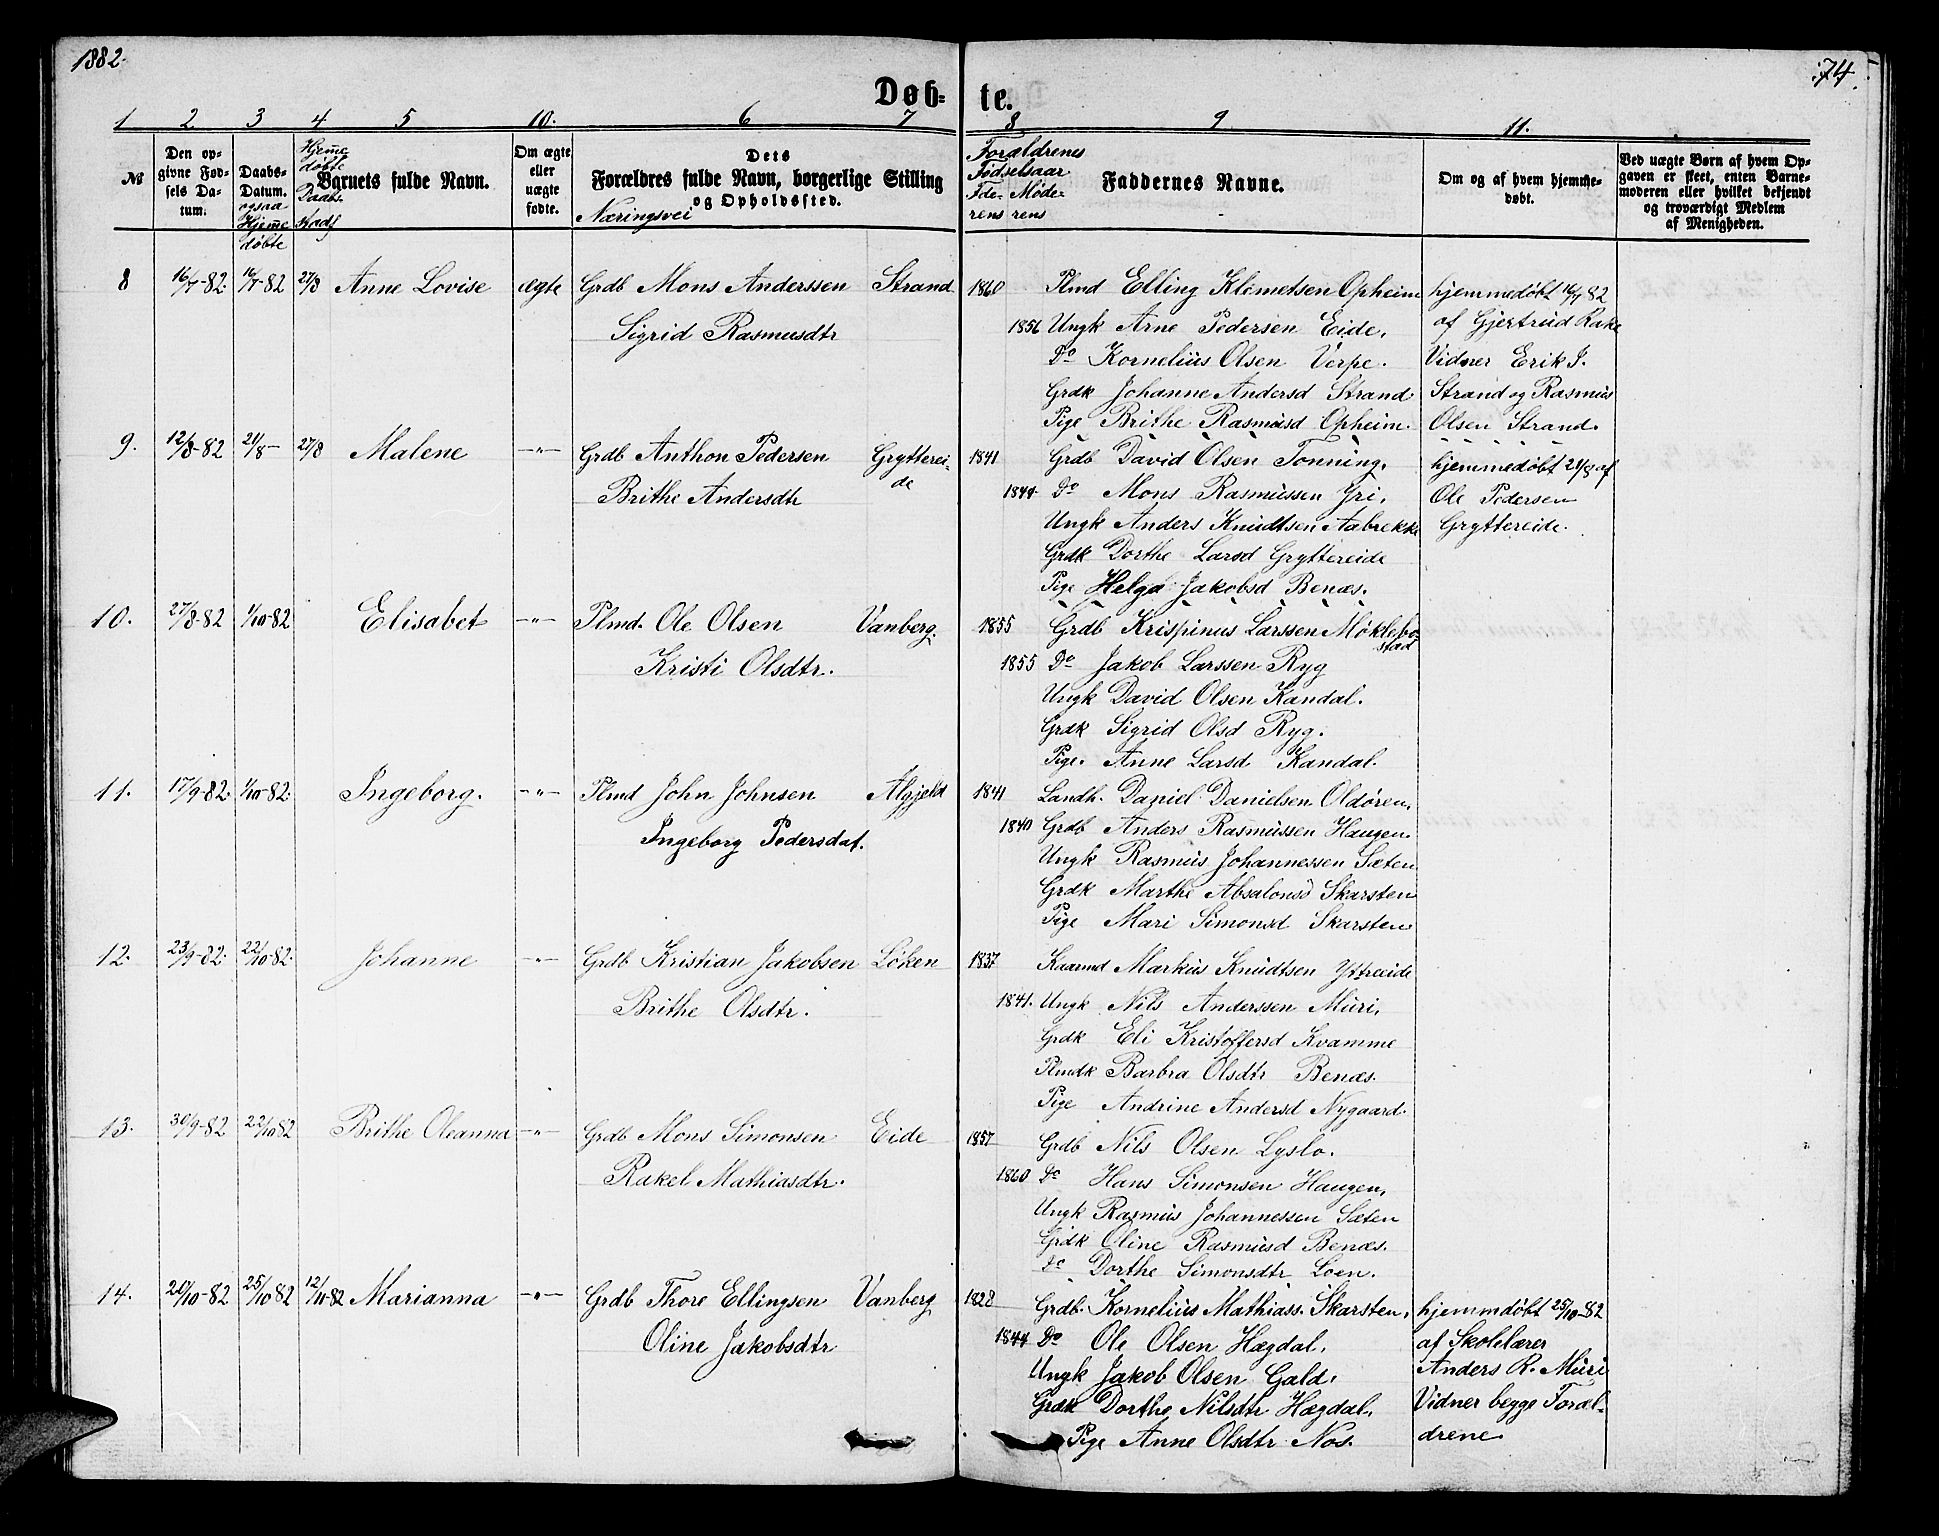 1882.
74.
Døb-
te.
1 2 3 4 5 10. 6 7 8 9 11.
№
Den op-
givne Fød-
sels Da-
tum.
Daabs-
Datum.
ogsaa
Hjeme
døbte
Hjeme
døbte
Daabs
Stadf
Barnets fulde Navn.
Om ægte
eller
uægte
fødte.
Dets
Forældres fulde Navn, borgerlige Stilling
og Opholdssted.
Næringsvei
Forældrenes
Fødselsaar
Fde- Møde-
rens rens
Faddernes Navne.
Om og af hvem hjemme-
døbt.
Ved uægte Børn af hvem Op-
gaven er skeet, enten Barne-
moderen eller hvilket bekjendt
og troværdigt Medlem
af Menigheden.
8 16/7-82. 16/7-82 27/8 Anne Lovise ægte Grdb Mons Anderssen Strand 1860 Plmd Elling Klemetsen Opheim hjemmedøbt 16/7 82
Sigrid Rasmusdtr 1856 Ungk Arne Pedersen Eide. af Gjertrud Rake
Do Kornelius Olsen Verpe. Vidner Erik J.
Grdk Johanne Andersd Strand Strand og Rasmus
Pige Brithe Rasmusd Opheim. Olsen Strand.
9. 12/8-82 21/8- 27/8 Malene -"- Grdb Anthon Pedersen Grytterei- 1841 Grdb David Olsen Tonning. hjemmedøbt 21/8 af
de
Brithe Andersdtr 1844. Do Mons Rasmussen Yri. Ole Pedersen
Ungk Anders Knudtsen Aabrekke Gryttereide.
Grdk Dorthe Larsd Gryttereide
Pige Helga Jakobsd Benæs.
10. 27/8-82 1/10-82 Elisabet -"- Plmd. Ole Olsen Vanberg. 1855 Grdb Krispinus Larssen Møklebo-
stad
Kristi Olsdtr. 1855 Do Jakob Larssen Ryg
Ungk David Olsen Kandal.
Grdk Sigrid Olsd Ryg.
Pige. Anne Larsd Kandal.
11. 17/9-82. 1/10-82. Ingeborg. -"- Plmd John Johnsen Algjeld 1841 Landh. Daniel Danielsen Oldøren.
Ingeborg Pedersdat. 1840 Grdb Anders Rasmussen Haugen.
Ungk Rasmus Johannessen Sæten
Grdk Marthe Absalonsd Skarsten
Pige Mari Simonsd Skarsten
12. 23/9-82. 22/10-82. Johanne -"- Grdb Kristian Jakobsen Løken 1837 Kaarmd Markus Knudtsen Yttreeide
Brithe Olsdtr. 1841. Ungk Nils Anderssen Muri.
Grdk Eli Kristoffersd Kvamme
Plmdk Barbra Olsdtr Benæs.
Pige Andrine Andersd Nygaard.
13. 30/9-82 22/10 82 Brithe Oleanna -"- Grdb Mons Simonsen Eide 1857 Grdb Nils Olsen Lyslo.
Rakel Mathiasdtr. 1860 Do Hans Simonsen Haugen.
Ungk Rasmus Johannessen Sæten
Grdk Oline Rasmusd Benæs.
Do Dorthe Simonsdtr Loen.
14. 20/10-82 25/10 82 12/11-82 Marianna -"- Grdb Thore Ellingsen Vanberg 1828 Grdb. Kornelius Mathiass. Skarsten. hjemmdøbt 25/10-82
Oline Jakobsdtr 1844 Do Ole Olsen Hægdal. af Skolelærer
Ungk Jakob Olsen Gald. Anders R. Muri
Grdk Dorthe Nilsdtr Hægdal. Vidner begge Foræl-
Pige Anne Olsdtr Nos. drene.